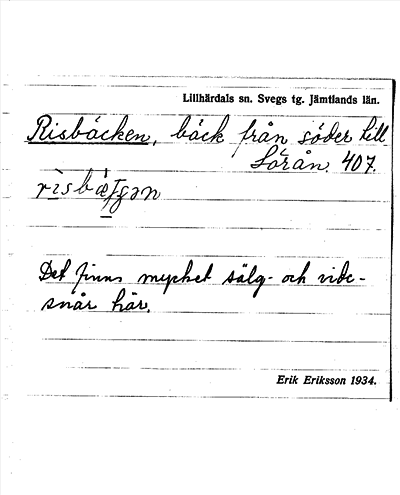 Lillhärdals sn. Svegs tg. Jämtlands län.
Risbäcken, bäck från söder till
Lörån. 407.
Det finns mycket sälg- och vide-
snår här.
Erik Eriksson 1934.